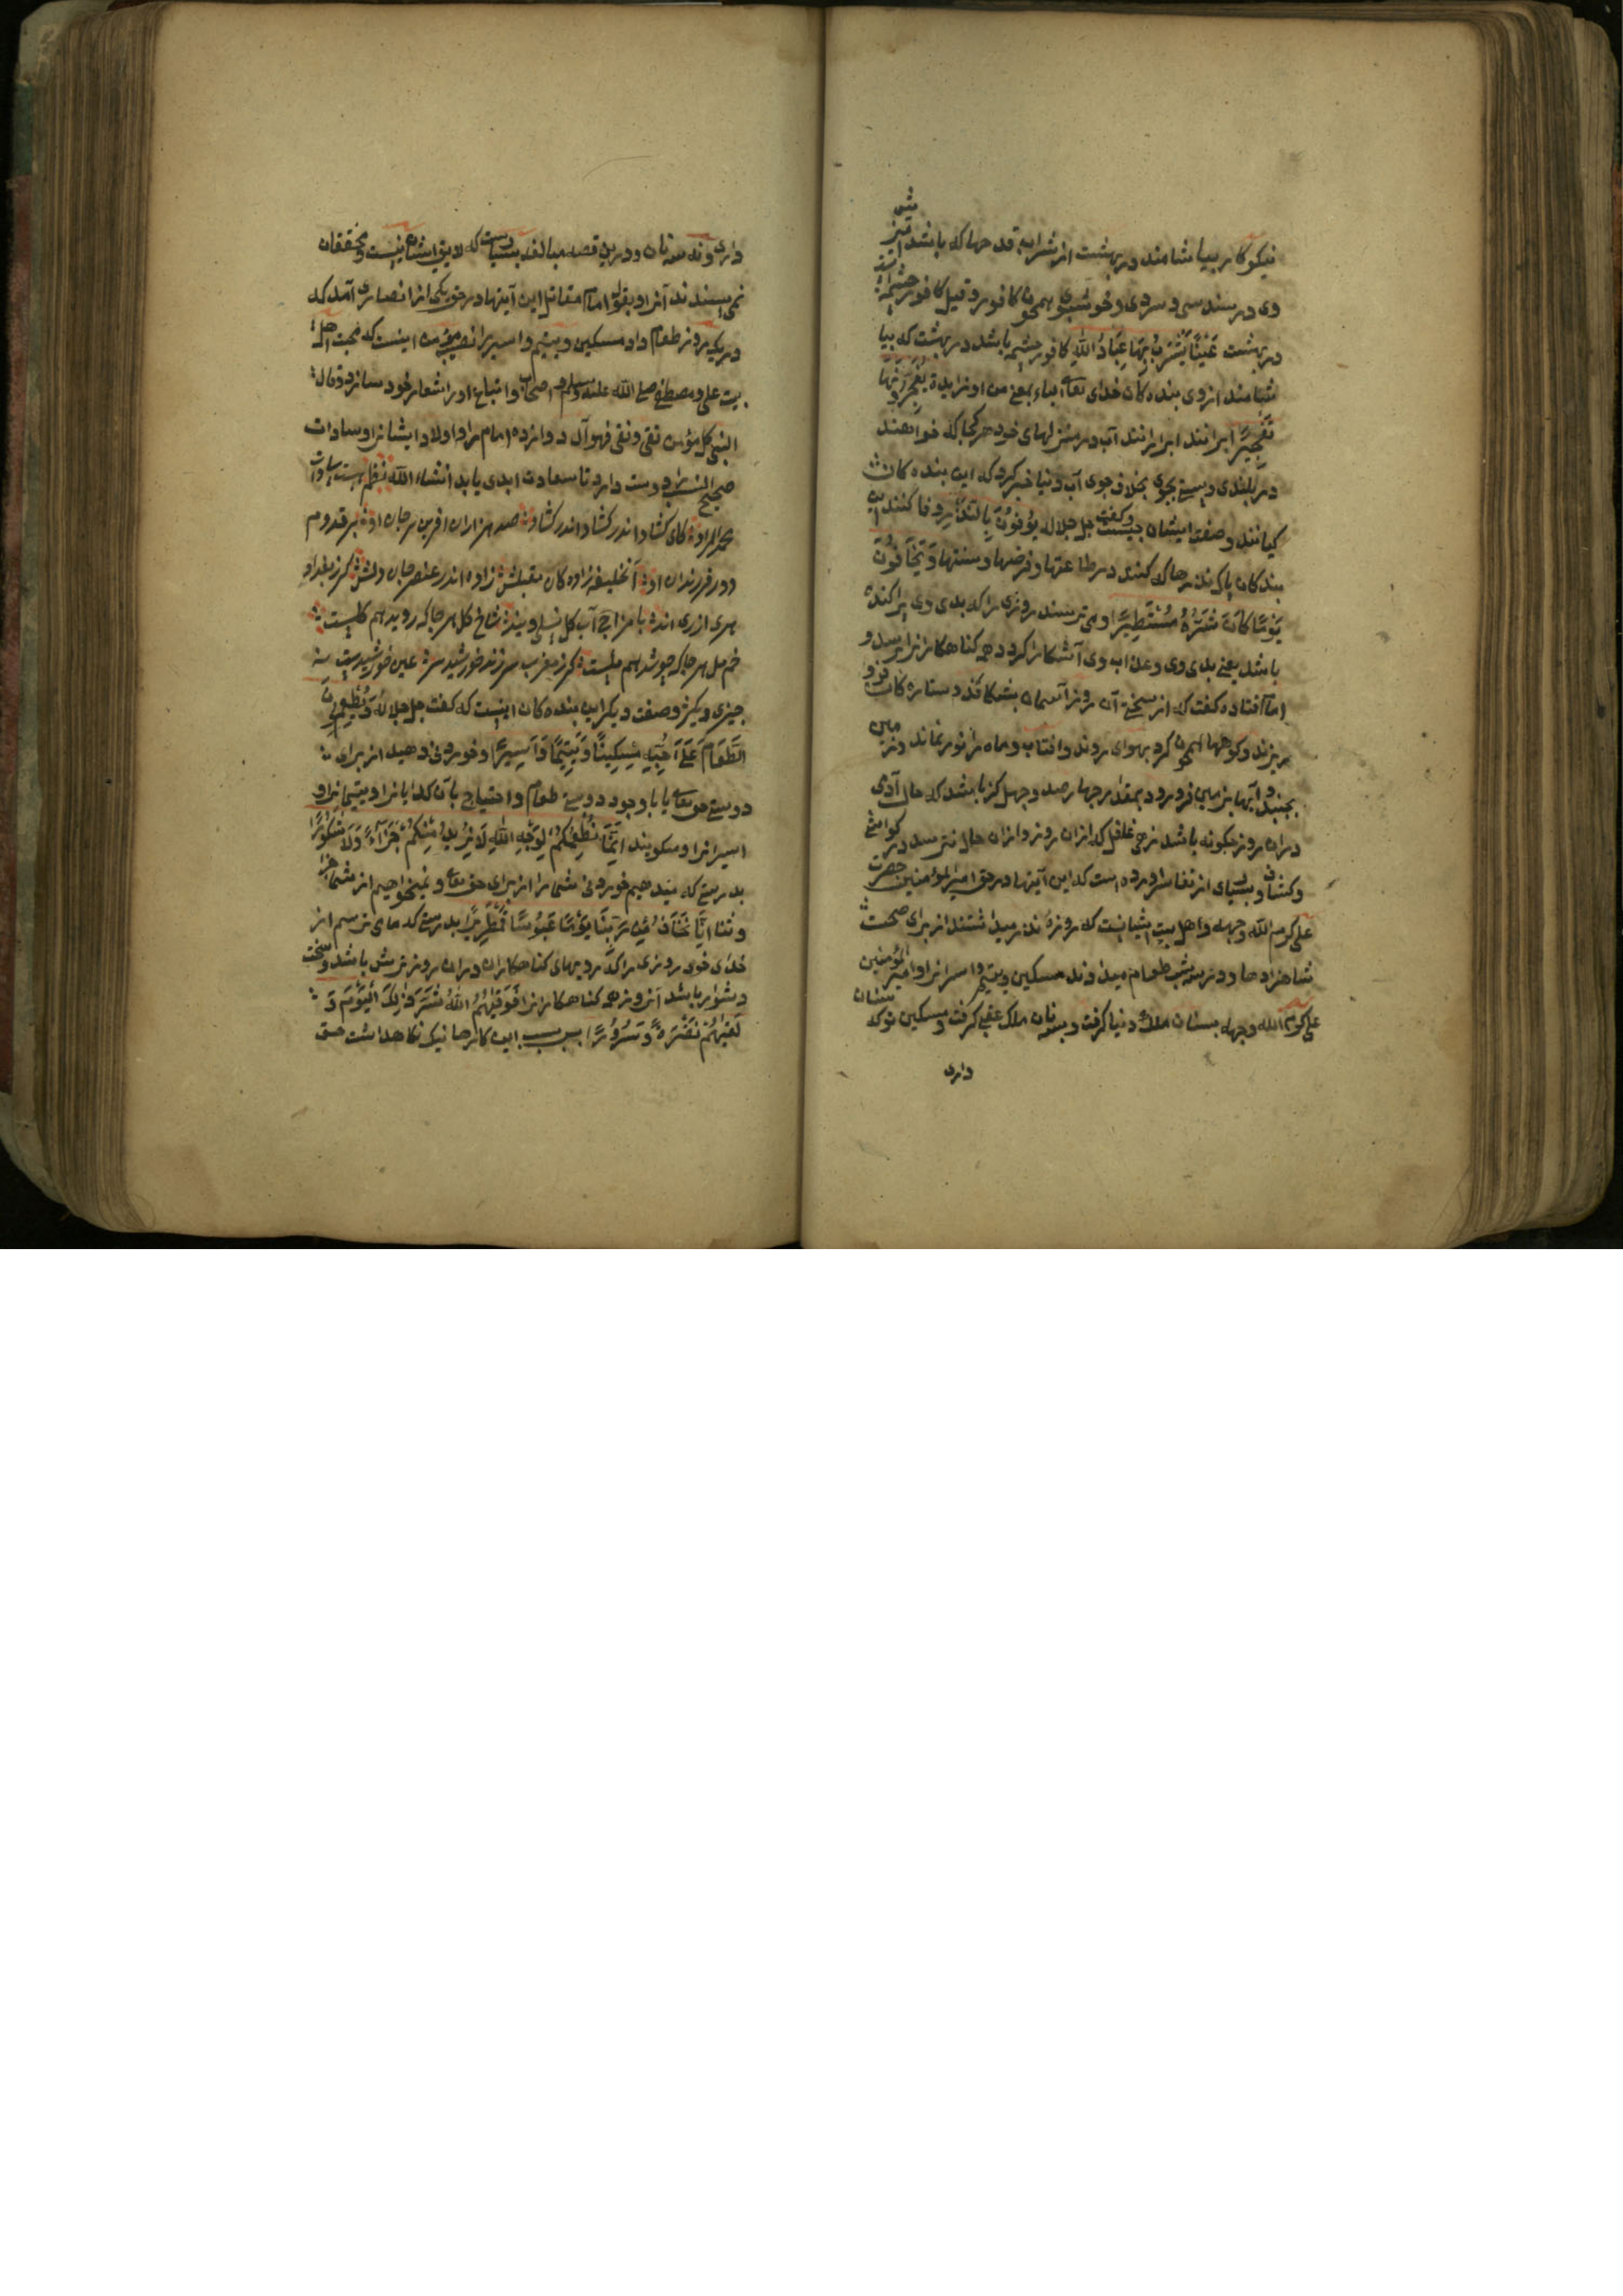 نیکوکار بیاشامند در بهشت از شراب قدحها که باشد آمیزش
وی در سپیدی و سردی و خوشبوی همچون کافور و قیل کافور چشمه ایست
در بهشت عَیْنًا یَشْرَبُ بِهَا عِبَادُ اللهِ کافور چشمه باشد در بهشت که بیا
شامند از وی بنده کان خدای تعالی باء بمعنی من او زایدة یُفَجِّرُونَهَا
تَفْجِیرًا ابرانند ابرانند آب در منزلهای خود هر کجا که خواهند
در بلندی و پستی بجوی بخلاف جوی آب دنیا خبر کرد که این بنده کان
کیانند و صفت ایشان چیست و گفت جل جلاله یُوفُونَ بِالنَّذْرِ وفا کنند این
بندکان پاک نذرها که کنند در طاعتها و فرضها و سنتها وَیَخَافُونَ
یَوْمًا کَانَ شَرُّهُ مُسْتَطِیرًا و می ترسند روزی را که بدی وی پراکنده
باشد یعنی بدی وی و عذاب وی آشکارا کردد همه کناهکارانرا برسد و
امام قتاده کفت که از سختی آن روز آسمان بشکافد و ستاره کان فرو
ریزند و کوهها همچون کرد بهوای روند و افتاب و ماه را نور نماند و زمین
بجنبد و آبها بزمین فرورود بمقدار چهارصد و چهل کز باشد که حال آدمی
دران روز چکونه باشد زهی غافل که ازان روز و ازان حال نترسد در کواشی
و کشاف و بسیای از تفاسر اورده است که این آیتها در حق امیرالمؤمنین حضرت
علی کرم الله وجهه و اهل بیت ایشانست که روزه نذر میداشتند از برای صحت
شاهزادها و در سه شب طعام میدادند مسکین و یتیم و اسرانرا و امیرالمؤمنین
علی کرم الله وجهه بسنان ملک دنیا کرفت و بسه نان ملک عقبی کرفت و مسکین تو که سنان
داری
داری و نه سه نان و درین قصه مبالغه بسیارست که لایق ایشان نیست و محققان
نمی پسندند آنرا و بقول امام مقاتل این آیتها در حق یکی از انصاری آمد که
در یک روز طعام داد مسکین و یتیم و اسیر را نصیب مؤمن اینست که محبت اهل
بیت علی و مصطفی صلی الله علیه وسلم و اصحاب و اتباع او را شعار خود سازد و قال
النبی کل مؤمن تقی و نقی فهو آل دوازده امام را و اولاد ایشانرا و سادات
صحیح النسب را دوست دارد تا سعادت ابدی یابد انشاء الله نظم
کشاد اندر کشاد اندر کشاد صد هزاران افرین بر جان او بر قدوم
و دور فرزندان او آن خلیفه زاده کان مقبلش زاده اند از عنصر جان و دلش کر ز بغداد
و هری از ری اند بی مزاج آب کل نسل ویند شاخ کل هر جا که روید هم کلست
خم مل هر جا که جوشد هم ملست کر ز مغرب سر زند خورشید سر عین خورشیدست نه
چیزی دیکر و صفت دیکر این بنده کان اینست که کفت جل جلاله وَیُطْعِمُونَ
الطَّعَامَ عَلَى حُبِّهِ مِسْکِینًا وَیَتِیمًا وَأَسِیرًا و خوردنی دهید از برای
دوستی حق تعالی یا با وجود دوستی طعام و احتیاج بآن کدایانرا و یتیمانرا و
اسیرانرا و میکویند إِنَّمَا نُطْعِمُکُمْ لِوَجْهِ اللهِ لَا نُرِیدُ مِنْکُمْ جَزَآءً وَلَا شُکُورًا
بدرستی که میدهیم خوردنی شما را از برای حق تعالی و نمیخواهیم از شما جزا
و ثنا إِنَّا نَخَافُ مِنْ رَبِّنَا یَوْمًا عَبُوسًا قَمْطَرِیرًا بدرستی که ما می ترسم از
خدای خود روزی را که رویهای کناهکاران دران روز ترش باشد و سخت
دشوار باشد آنروز همه کناهکارانرا فَوَقٰیهُمُ اللهُ شَرَّ ذٰلِكَ الْیَوْمِ وَ
لَقّٰیهُمْ نَضْرَةً وَسُرُورًا بس بسبب این کارها نیک نکاهداشت حق